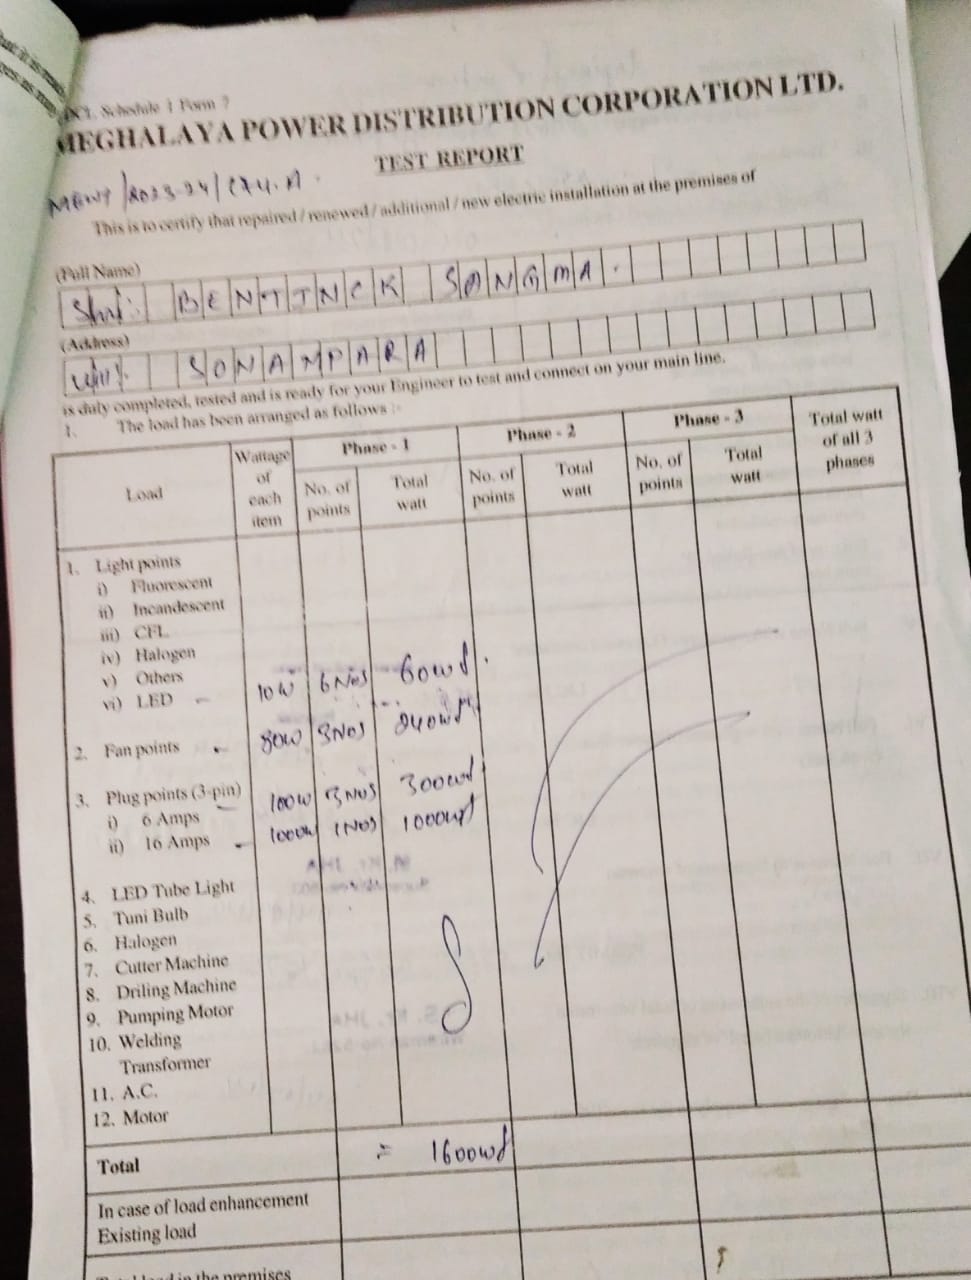 Schedule 1 Form 7
MEGHALAYA POWER DISTRIBUTION CORPORATION LTD.
TEST REPORT
This is to certify that repaired / renewed / additional / new electric installation at the premises of
(Full Name)
Shri. BENTINCK SANGMA.
(Address)
Vill. SONAMPARA
is duly completed, tested and is ready for your Engineer to test and connect on your main line.
1. The load has been arranged as follows :-
Load Wattage of each item Phase - 1 Phase - 2 Phase - 3 Total watt of all 3 phases
No. of points Total watt No. of points Total watt No. of points Total watt
1. Light points
i) Fluorescent
ii) Incandescent
iii) CFL
iv) Halogen
v) Others
vi) LED - 10W 6Nos 60wt.
2. Fan points - 80W 3Nos 240wt
3. Plug points (3-pin)
i) 6 Amps 100W 3Nos 300wt
ii) 16 Amps - 1000W 1Nos 1000wt
4. LED Tube Light
5. Tuni Bulb
6. Halogen
7. Cutter Machine
8. Driling Machine
9. Pumping Motor
10. Welding
Transformer
11. A.C.
12. Motor
Total = 1600wt
In case of load enhancement
Existing load
load in the premises